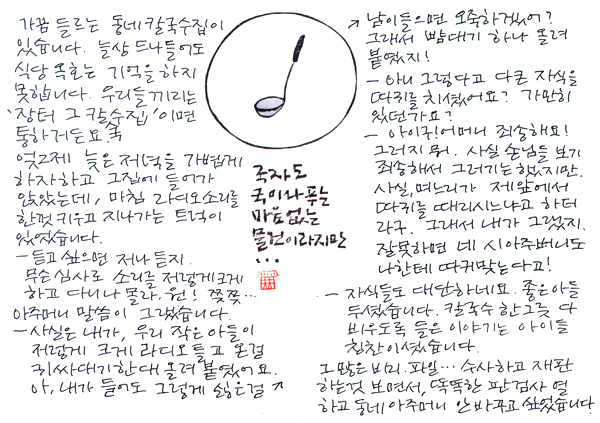 가끔 들르는 동네 칼국수집이
있습니다. 늘상 드나들어도
식당 옥호는 기억을 하지
못합니다. 우리들끼리는
'장터 그 칼수집' 이면
통하거든요.
엊그제 늦은 저녁을 가볍게
하자하고 그집에 들어가
앉았는데, 마침 라디오소리를
한껏 키우고 지나가는 트럭이
있었습니다.
- 듣고 싶으면 저나 듣지.
무슨 심사로 소리를 저렇게 크게
하고 다니나 몰라. 원! 쯧쯧...
아주머니 말씀이 그랬습니다.
- 사실은 내가, 우리 작은 아들이
저렇게 크게 라디오 틀고 온걸
귀싸대기 한대 올려 붙였어요.
아, 내가 들어도 그렇게 싫은걸
국자도
국이나 푸는
마음없는
물건이라지만
...
남이 들으면 오죽하겠어?
그래서 뺨대기 하나 올려
붙였지!
- 아니 그렇다고 다 큰 자식을
따귀를 치셨어요? 가만히
있던가요?
- 아이구! 어머니 죄송해요!
그러지 뭐. 사실 손님들 보기
죄송해서 그러기는 했지만.
사실, 며느리가 제 앞에서
따귀를 때리시느냐고 하더
라구. 그래서 내가 그랬지.
잘못하면 네 시아주버니도
나한테 따귀맞는다고!
- 자식들도 대단하네요. 좋은 아들
두셨습니다. 칼국수 한그릇 다
비우도록 들은 이야기는 아이들
칭찬이셨습니다.
그 많은 비리. 파일... 수사하고 재판
하는것 보면서, 똑똑한 판검사 열
하고 동네 아주머니 안 바꾸고 싶었습니다